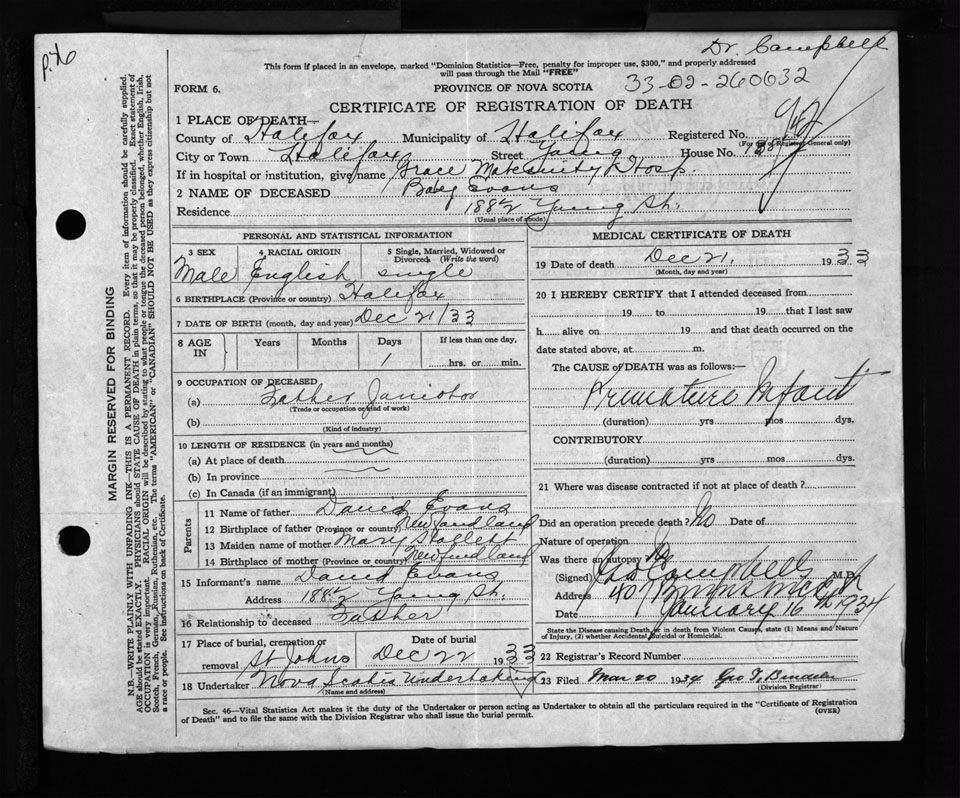 p. 76
Dr. Campbell
This form if placed in an envelope, marked "Dominion Statistics—Free, penalty for improper use, $300," and properly addressed
will pass through the Mail "FREE"
FORM 6.
PROVINCE OF NOVA SCOTIA
33-02-260632
CERTIFICATE OF REGISTRATION OF DEATH
1 PLACE OF DEATH—
County of Halifax Municipality of Halifax Registered No.
(For use of Registrar General only)
City or Town Halifax Street Young House No.
If in hospital or institution, give name Grace Maternity Hosp.
2 NAME OF DECEASED Baby Evans
Residence 188½ Young St.
(Usual place of abode)
PERSONAL AND STATISTICAL INFORMATION
3 SEX 4 RACIAL ORIGIN 5 Single, Married, Widowed or Divorced (Write the word)
Male English single
6 BIRTHPLACE (Province or country) Halifax
7 DATE OF BIRTH (month, day and year) Dec 21/33
8 AGE IN Years Months Days If less than one day,
1 hrs. or min.
9 OCCUPATION OF DECEASED
(a) Father Janiotor
(Trade or occupation or kind of work)
(b)
(Kind of industry)
10 LENGTH OF RESIDENCE (in years and months)
(a) At place of death
(b) In province
(c) In Canada (if an immigrant)
Parents
11 Name of father David Evans
12 Birthplace of father (Province or country) Newfundland
13 Maiden name of mother Mary
14 Birthplace of mother (Province or country) Newfundland
15 Informant's name David Evans
Address 188½ Young St.
16 Relationship to deceased Father
17 Place of burial, cremation or removal St Johns Date of burial Dec 22 1933
18 Undertaker Nova Scotia Undertaking
(Name and address)
MEDICAL CERTIFICATE OF DEATH
19 Date of death Dec 21, 1933
(Month, day and year)
20 I HEREBY CERTIFY that I attended deceased from
19 to 19 that I last saw
h alive on 19 and that death occurred on the
date stated above, at m.
The CAUSE of DEATH was as follows:—
Premature Infant
(duration) yrs mos dys.
CONTRIBUTORY
(duration) yrs mos dys.
21 Where was disease contracted if not at place of death?
Did an operation precede death? No Date of
Nature of operation
Was there an autopsy No
(Signed) Campbell M.D.
Address 407
Date January 16th 1934
State the Disease causing Death, or in death from Violent Causes, state (1) Means and Nature
of Injury, (2) whether Accidental, Suicidal or Homicidal.
22 Registrar's Record Number
23 Filed Mar 20 1934 Geo T.
(Division Registrar)
Sec. 46—Vital Statistics Act makes it the duty of the Undertaker or person acting as Undertaker to obtain all the particulars required in the "Certificate of Registration
of Death" and to file the same with the Division Registrar who shall issue the burial permit.
(OVER)
MARGIN RESERVED FOR BINDING
N.B.—WRITE PLAINLY WITH UNFADING INK—THIS IS A PERMANENT RECORD. Every item of information should be carefully supplied.
AGE should be stated EXACTLY. PHYSICIANS should STATE CAUSE OF DEATH in plain terms, so that it may be properly classified. Exact statement of
OCCUPATION is very important. RACIAL ORIGIN will be described by stating to what people or tongue the deceased person belonged, whether English, Irish,
Scotch, French, German, Russian, Ruthenian, etc. The terms "AMERICAN" or "CANADIAN" SHOULD NOT BE USED as they express citizenship but not
a race or people. See instructions on back of Certificate.